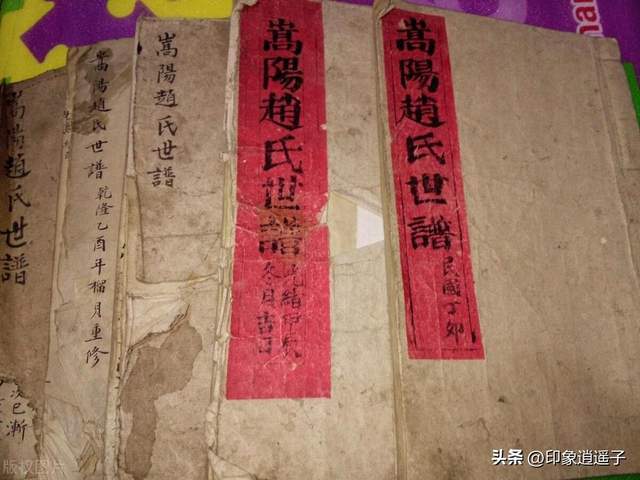 嵩陽趙氏世譜
民國丁卯
嵩陽趙氏世譜
緒甲
冬月吉日
嵩陽趙氏世譜
嵩陽趙氏世譜 乾隆乙酉年榴月重修
嵩陽趙氏世譜
次已漸
版权图片
头条 @印象逍遥子